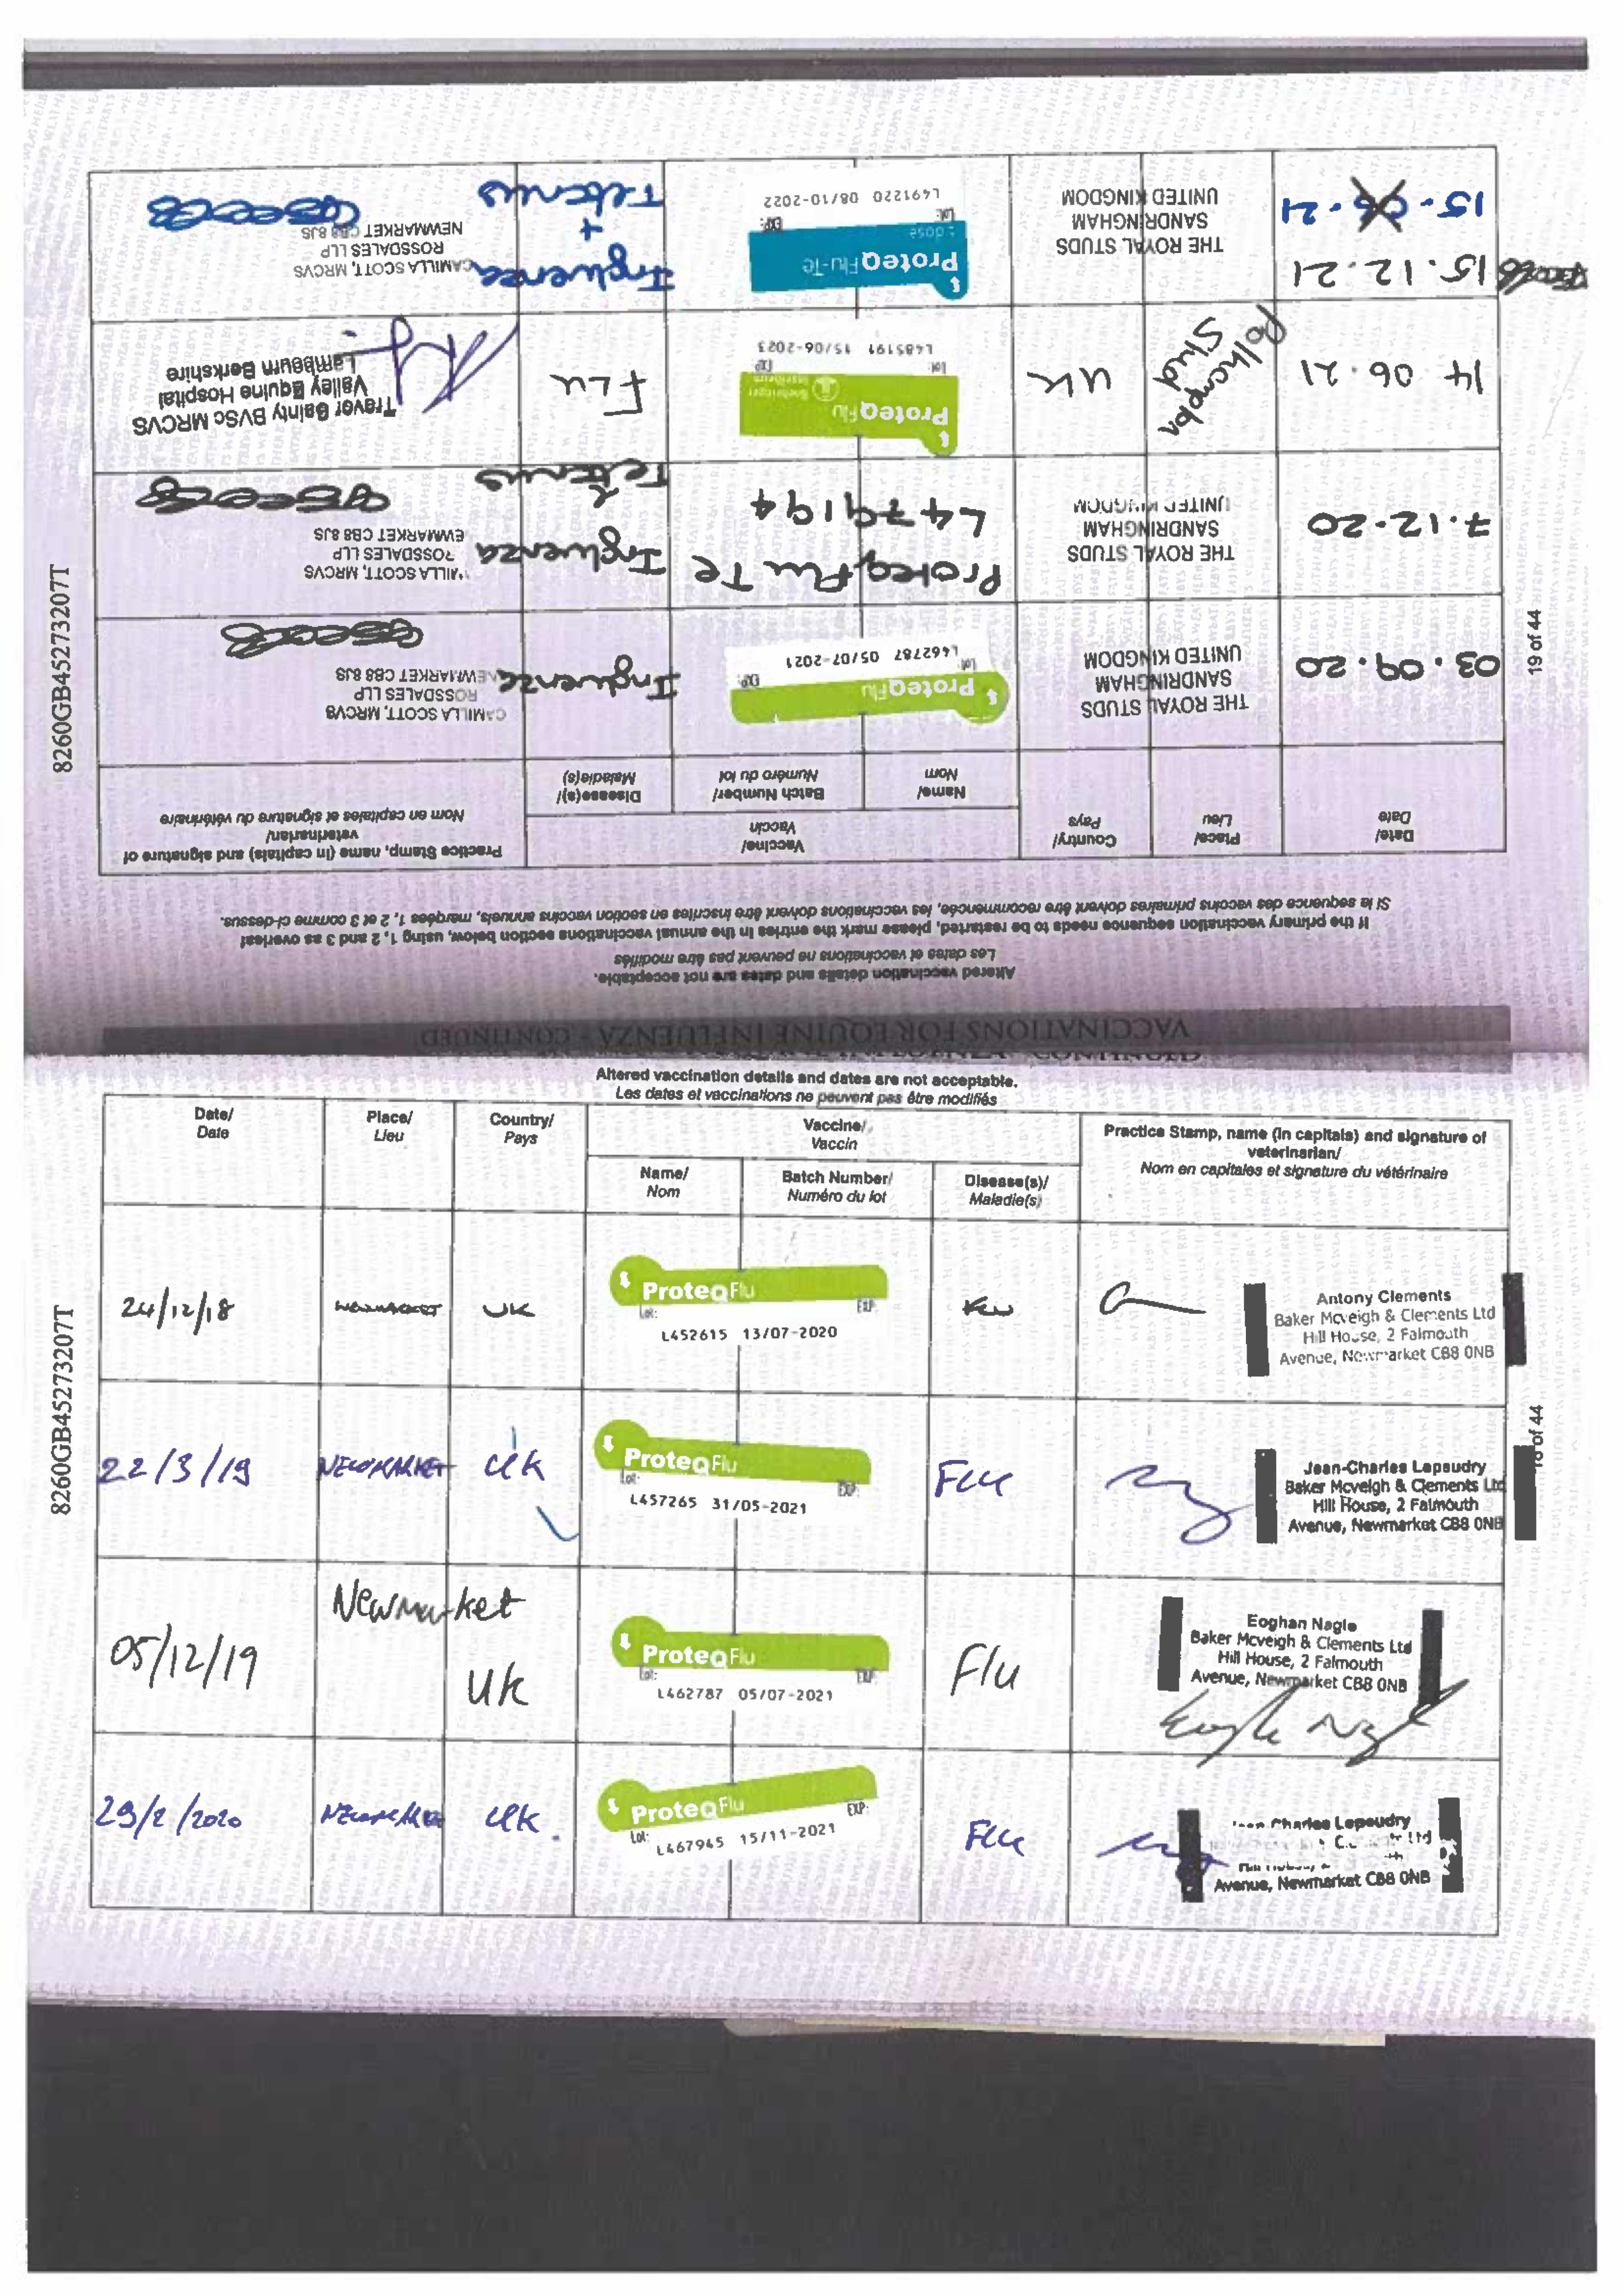 VACCINATIONS FOR EQUINE INFLUENZA - CONTINUED
Altered vaccination details and dates are not acceptable.
Les dates et vaccinations ne peuvent pas être modifiés
If the primary vaccination sequence needs to be restarted, please mark the entries in the annual vaccinations section below, using 1, 2 and 3 as overleaf
Si la sequence des vaccins primaires doivent être recommencée, les vaccinations doivent être inscrites en section vaccins annuels, marquées 1, 2 et 3 comme ci-dessus.
Date/
Date
Place/
Lieu
Country/
Pays
Vaccine/
Vaccin
Name/
Nom
Batch Number/
Numéro du lot
Disease(s)/
Maladie(s)
Practice Stamp, name (in capitals) and signature of
veterinarian/
Nom en capitales et signature du vétérinaire
03.09.20
THE ROYAL STUDS
SANDRINGHAM
UNITED KINGDOM
ProteqFlu
Lot: EXP:
L462787 05/07-2021
Influenza
CAMILLA SCOTT, MRCVS
ROSSDALES LLP
NEWMARKET CB8 8JS
7.12.20
THE ROYAL STUDS
SANDRINGHAM
UNITED KINGDOM
Proteq Flu Te
L479194
Influenza
&
Tetanus
MILLA SCOTT, MRCVS
ROSSDALES LLP
EWMARKET CB8 8JS
14.06.21
Polhampton
Stud
UK
ProteqFlu
Boehringer
Ingelheim
Lot: EXP:
L485191 15/06-2023
FLU
Trevor Gainty BVSc MRCVS
Valley Equine Hospital
Lambourn Berkshire
15.12.21
15. .21
THE ROYAL STUDS
SANDRINGHAM
UNITED KINGDOM
ProteqFlu-Te
1 dose
Lot: EXP:
L491220 08/10-2022
Influenza
+
Tetanus
CAMILLA SCOTT, MRCVS
ROSSDALES LLP
NEWMARKET CB8 8JS
19 of 44
8260GB45273207T
Altered vaccination details and dates are not acceptable.
Les dates et vaccinations ne peuvent pas être modifiés
Date/
Date
Place/
Lieu
Country/
Pays
Vaccine/
Vaccin
Name/
Nom
Batch Number/
Numéro du lot
Disease(s)/
Maladie(s)
Practice Stamp, name (in capitals) and signature of
veterinarian/
Nom en capitales et signature du vétérinaire
24/12/18
NEWMARKET
UK
ProteqFlu
Lot: EXP:
L452615 13/07-2020
Antony Clements
Baker Mcveigh & Clements Ltd
Hill House, 2 Falmouth
Avenue, Newmarket CB8 0NB
22/3/19
NEWMARKET
UK
ProteqFlu
Lot: EXP:
L457265 31/05-2021
Flu
Jean-Charles Lepaudry
Baker Mcveigh & Clements Ltd
Hill House, 2 Falmouth
Avenue, Newmarket CB8 0NB
05/12/19
Newmarket
UK
ProteqFlu
Lot: EXP:
L462787 05/07-2021
Flu
Eoghan Nagle
Baker Mcveigh & Clements Ltd
Hill House, 2 Falmouth
Avenue, Newmarket CB8 0NB
29/2/2020
NEWMARKET
UK
ProteqFlu
Lot: EXP:
L467945 15/11-2021
Flu
Charles Lepaudry
Avenue, Newmarket CB8 0NB
of 44
8260GB45273207T